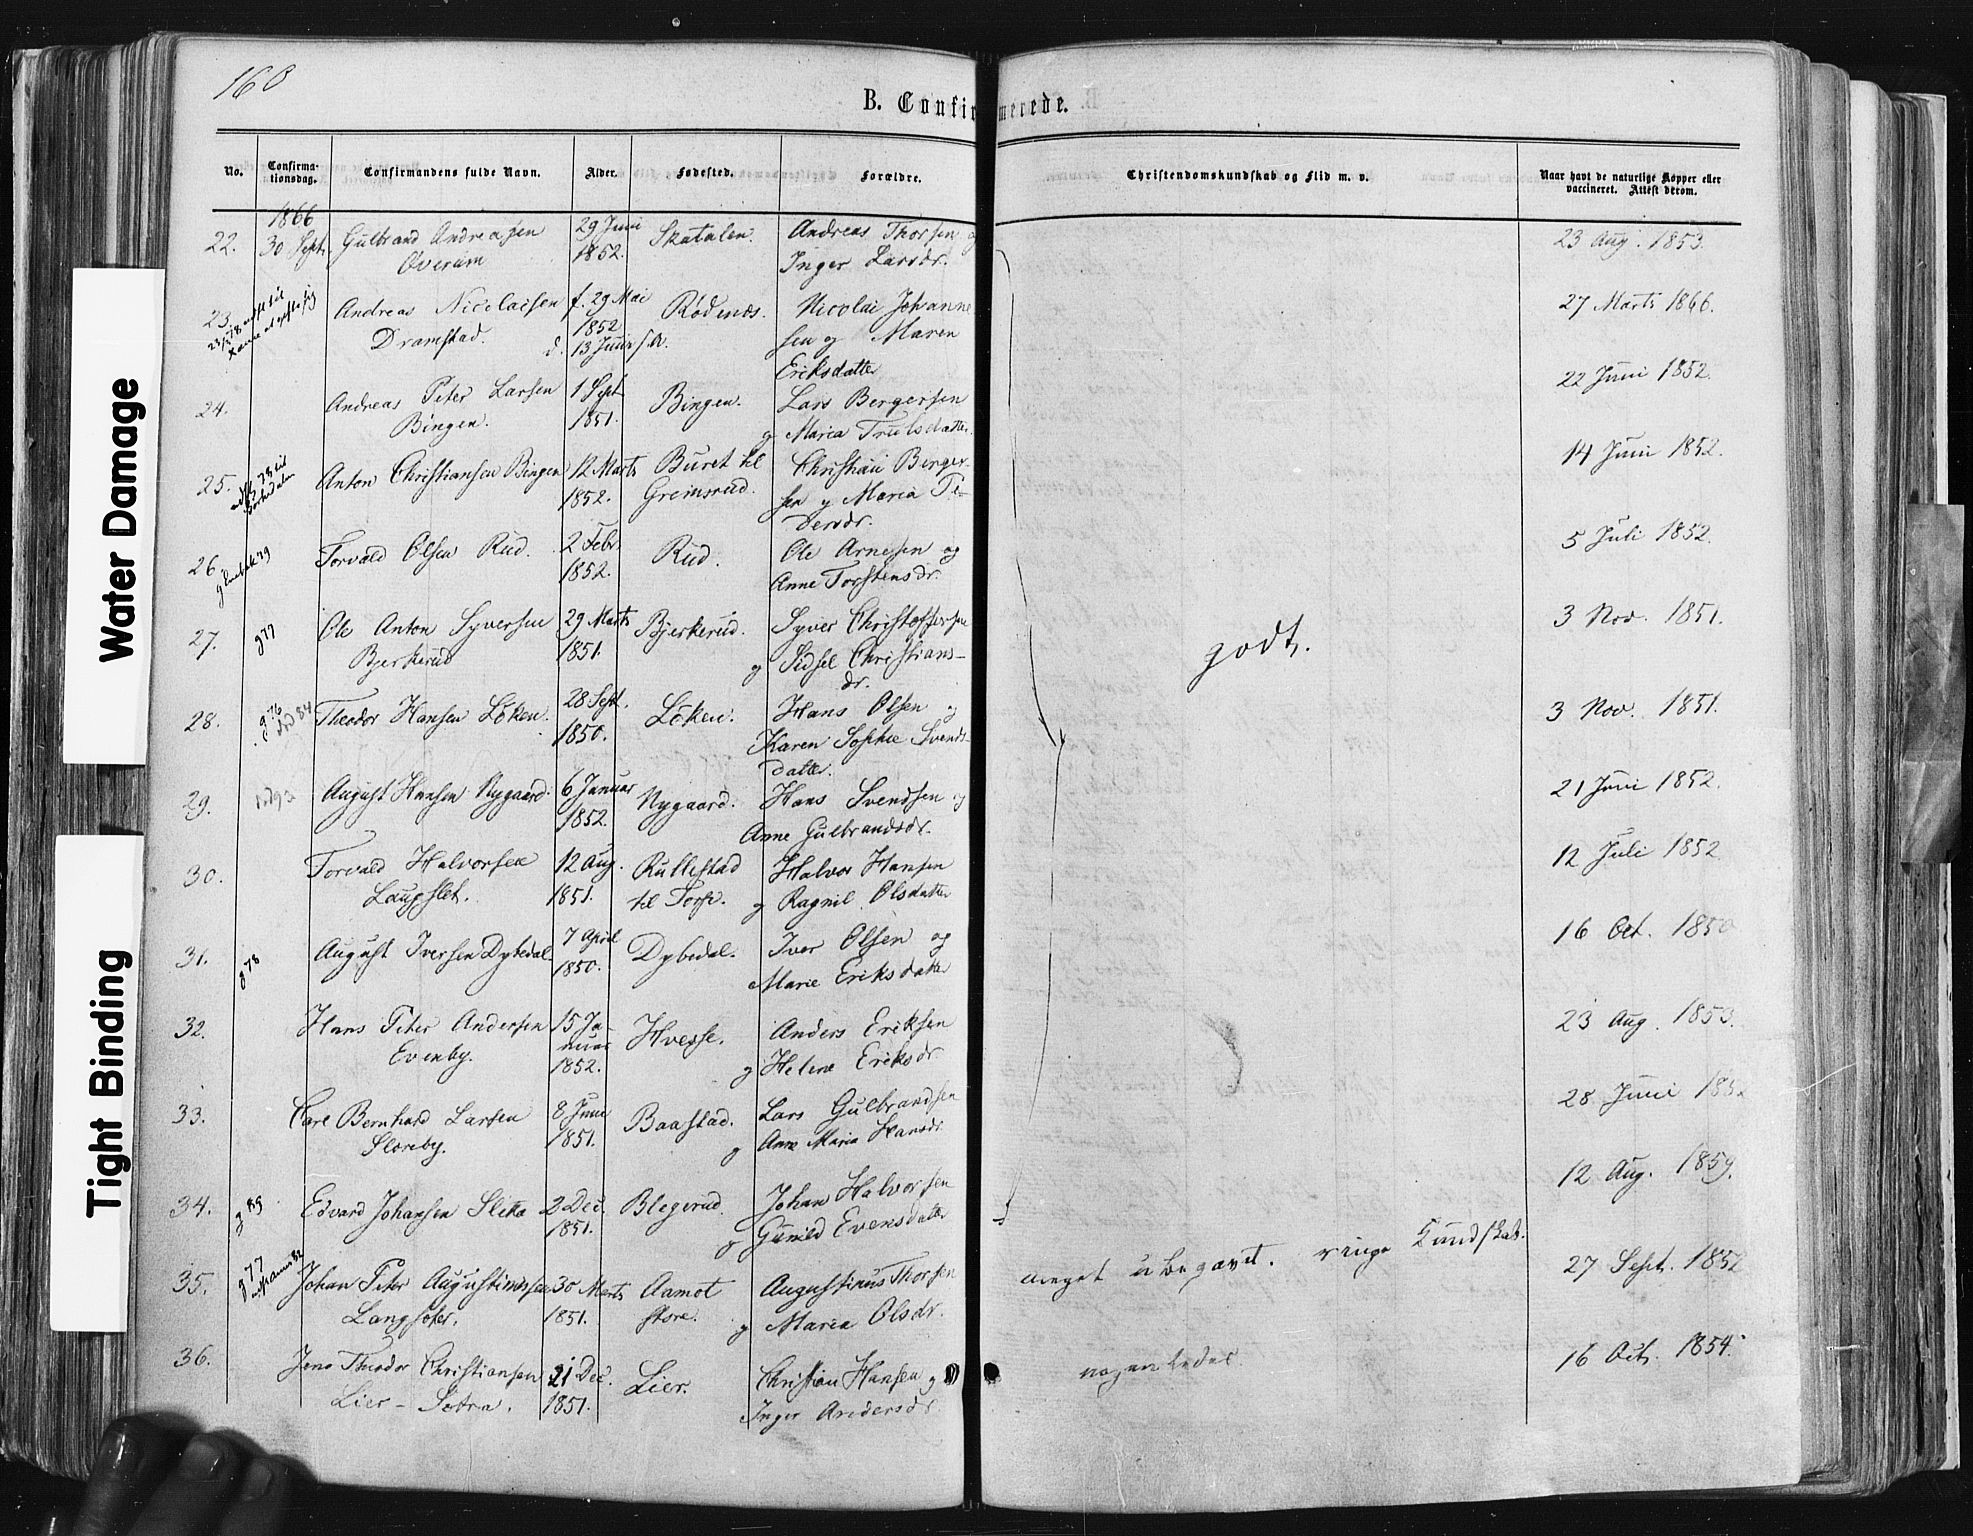 160
B. Confirmerede.
No. Confirma-tionsdag. Confirmandens fulde Navn. Alder. Fødested. Forældre. Christendomskundskab og Flid m. v. Naar havt de naturlige Kopper eller vaccineret. Attest derom.
1866
22. 30 Sept. Gulbrand Andreasen 29 Juni Skatalen. Andreas Thorsen og 23 Aug. 1853.
Øverüm 1852. Inger Larsdr.
23. Andreas Nicolaisen f. 29 Mai Rødenæs. Nicolai Johanne 27 Marts 1866.
Dramstad. 1852 sen og Maren
d. 13 Juni s. A. Eriksdatter
24. Andreas Peter Larsen 1 Sept. Bingen. Lars Bergersen 22 Juni 1852.
Bingen. 1851. og Maria Trulsdatter.
25. Anton Christiansen Bingen 12 Marts Buret til Christian Berger- 14 Juni 1852.
1852. Greimsrud. sen og Maria Pe-
dersdr.
26. Torvald Olsen Rud. 2 Febr. Rud. Ole Arnesen og 5 Juli 1852.
1852. Anne Torstensdr.
27. g 77 Ole Anton Syversen 29 Marts Bjerkerud. Syver Christophersen 3 Nov. 1851.
Bjerkerud 1851. og Sidsel Christians-
dr.
godt.
28. g 76 Theodor Hansen Løken. 28 Sept. Løken. Hans Olsen og 3 Nov. 1851.
1850. Karen Sophie Svends-
datter.
29. August Hansen Nygaard. 6 Januar Nygaard. Hans Svendsen og 21 Juni 1852.
1852. Anne Gulbrandsdr.
30. Torvald Halvorsen 12 Aug. Rullestad Halvor Hansen 12 Juli 1852
Laugslet. 1851. til Torp. og Ragnil Olsdatter
31. g 78 August Iversen Dybedal 7 April Dybedal. Iver Olsen og 16 Oct. 1850
1850. Marie Eriksdatter
32. Hans Peter Andersen 15 Ja- Hvesse. Anders Eriksen 23 Aug. 1853.
Evenby. nuar og Helene Eriksdr
1852.
33. Carl Bernhard Larsen 8 Juni Baastad. Lars Gulbrandsen 28 Juni
Sloreby. 1851. og Anne Maria Hansdr.
34. g 89 Edvard Johansen Sletta 2 Dec. Blegerud. Johan Halvorsen 12 Aug. 1859.
1851. og Gunild Evensdatter
35. g 77 Johan Peter Augustinussen 30 Marts Aamot Augustinus Thorsen meget ubegavet. ringe Kundskab. 27 Sept. 1852
Langsæter. 1851. store. og Maria Olsdr.
36. Jens Theodor Christiansen 21 Dec. Lier. Christian Hansen og nogenledes. 16 Oct. 1854.
Lier - Sætra. 1851. Inger Andersdr.
Water Damage
Tight Binding